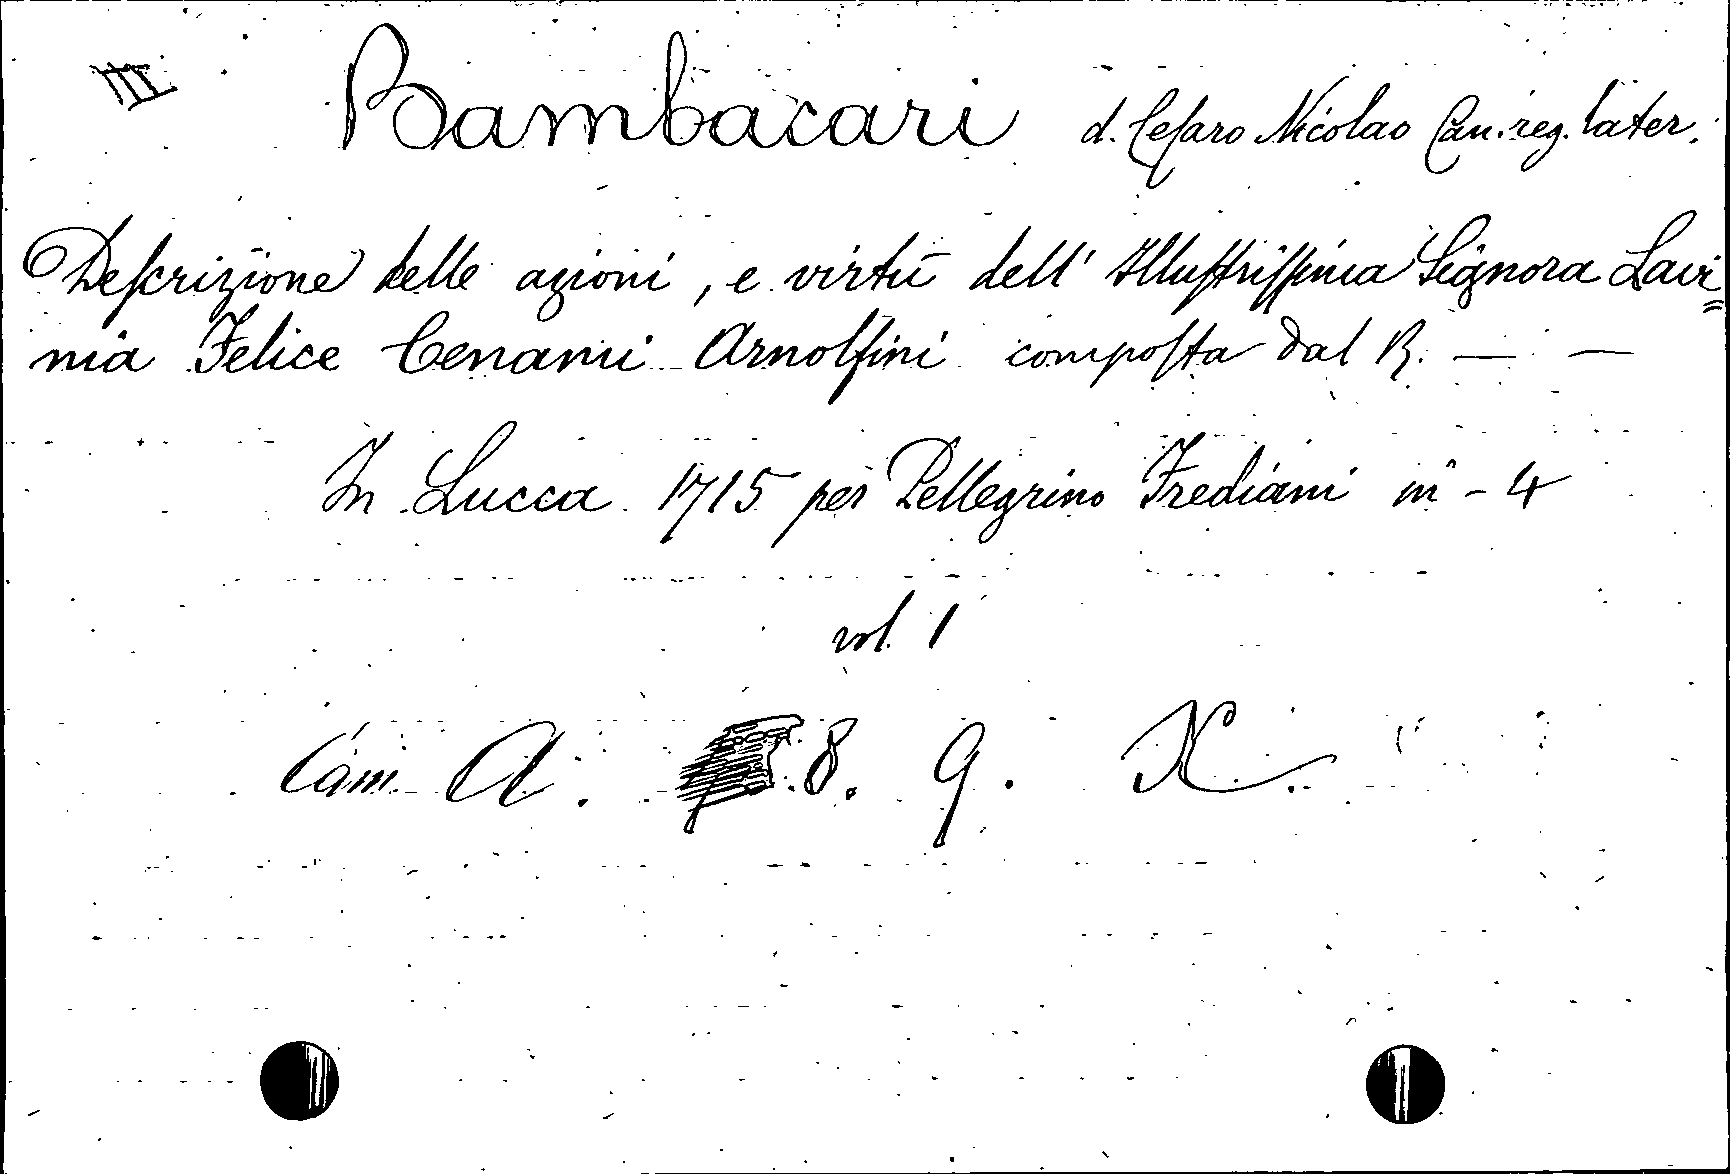 III Bambacari d. Cesaro Nicolao Can. reg. later.
Descrizione delle azioni, e virtù dell' Illustrissima Signora Lavi=
nia Felice Cenami Arnolfini composta dal B. — —
In Lucca 1715 per Pellegrino Frediani in - 4
vol. 1
Cam. A. 8. 9. X.